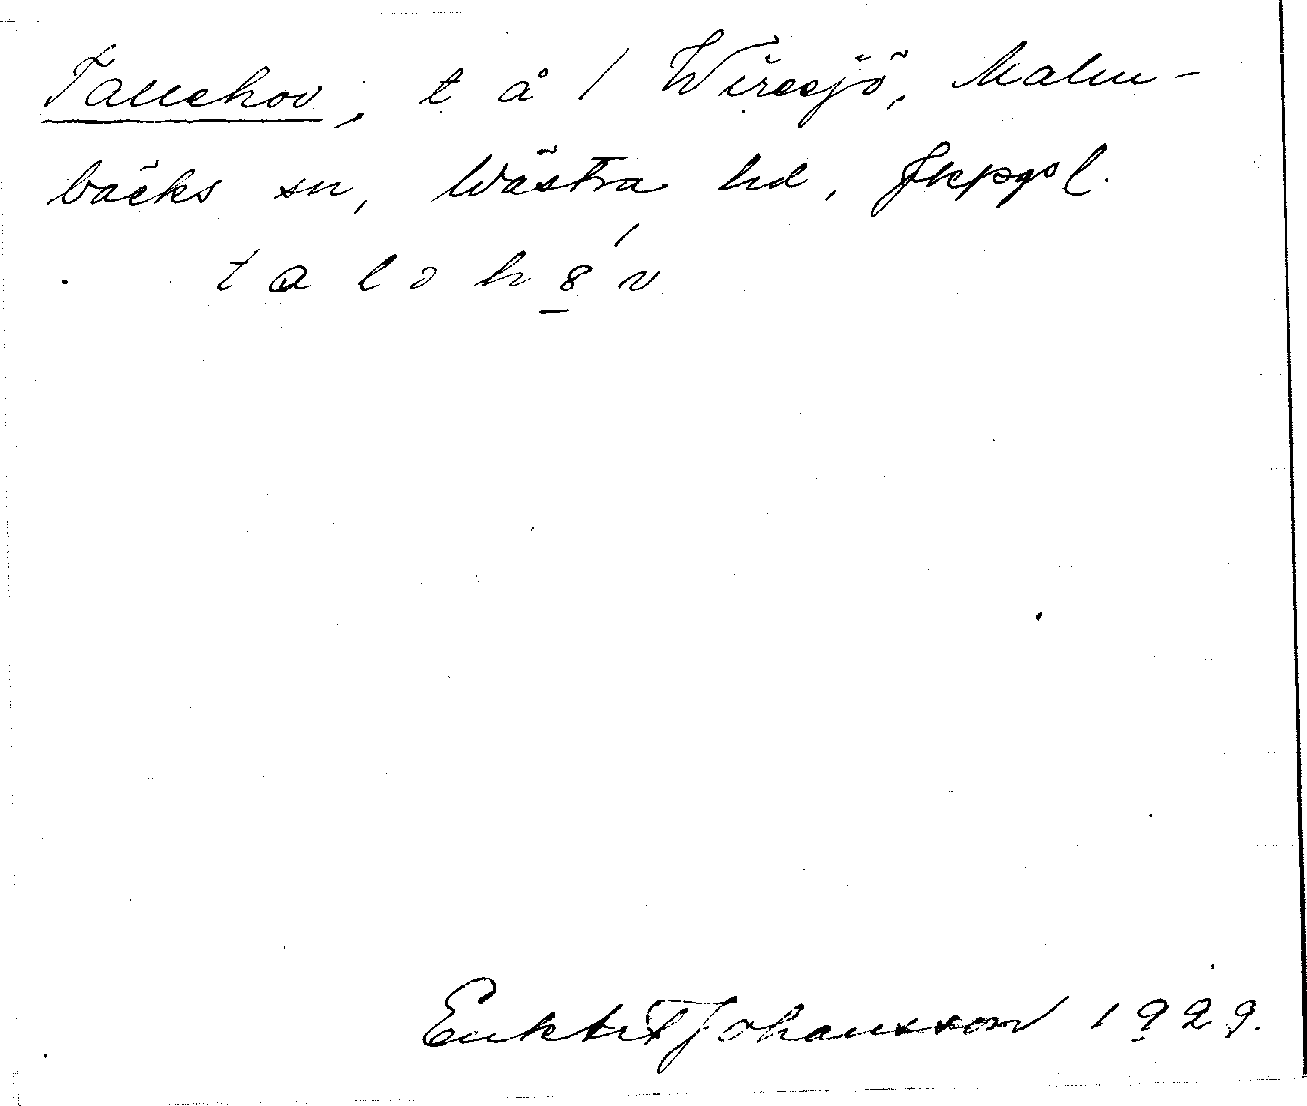 Tallehov, t å / Wiresjö, Malm-
bäcks sn, Wästra hd, Jkpgs l.
t a l ə h 8́ v
Johansson 1929.